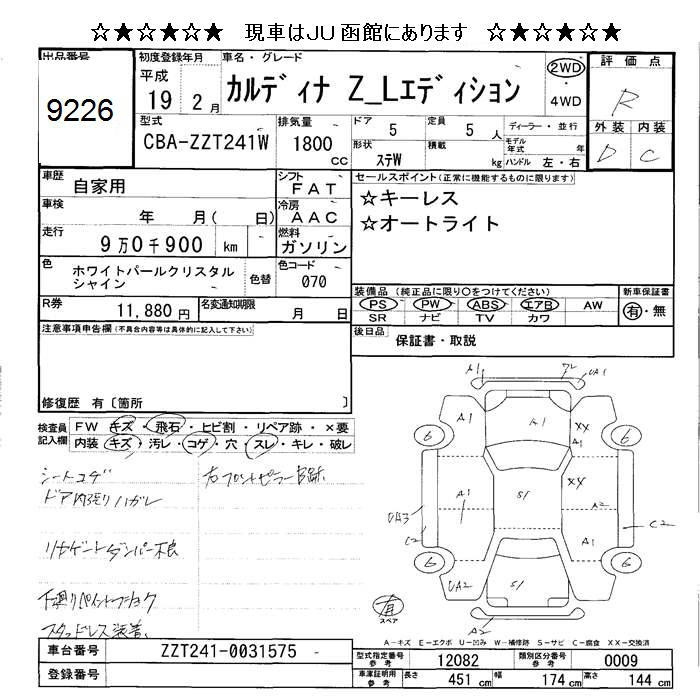 ☆★☆★☆★ 現車はJU函館にあります ☆★☆★☆★
出品番号 9226
初度登録年月 平成 19 2 月
車名・グレード カルディナ Z_Lエディション
2WD ・ 4WD
評価点 R
外装 内装
D C
型式 CBA-ZZT241W
排気量 1800 cc
ドア 5
定員 5 人
ディーラー・並行
形状 ステW
積載 kg
モデル年式 年
ハンドル 左・右
車歴 自家用
シフト FAT
車検 年 月( 日)
冷房 AAC
走行 9万0千900 km
燃料 ガソリン
色 ホワイトパールクリスタルシャイン
色替
色コード 070
R券 11,880円
名変通知期限 月 日
セールスポイント(正常に機能するものに限ります)
☆キーレス
☆オートライト
装備品(純正品に限り○をつけてください)
PS PW ABS エアB AW
SR ナビ TV カワ
新車保証書 有・無
後日品 保証書・取説
注意事項申告欄(不具合内容等は具体的に記入して下さい)
修復歴 有〔箇所 〕
検査員記入欄
FW キズ・飛石・ヒビ割・リペア跡・×要
内装 キズ・汚レ・コゲ・穴・スレ・キレ・破レ
シートコゲ
ドア内張りハガレ
リヤゲートダンパー不良
下廻りペイントブショク
スタッドレス装着
右フロントピラーB跡
A1 フレ UA1
A1 A1 XX
6 6
A1 S1 XX
UA3 A2
C2 C2
A1
6 6
UA2 S1
A2
有 スペア
A-キズ E-エクボ U-凹み W-補修跡 S-サビ C-腐食 XX-交換済
車台番号 ZZT241-0031575
登録番号
型式指定番号 参考 12082
類別区分番号 参考 0009
車庫証明用 参考 長さ 451 cm 幅 174 cm 高さ 144 cm